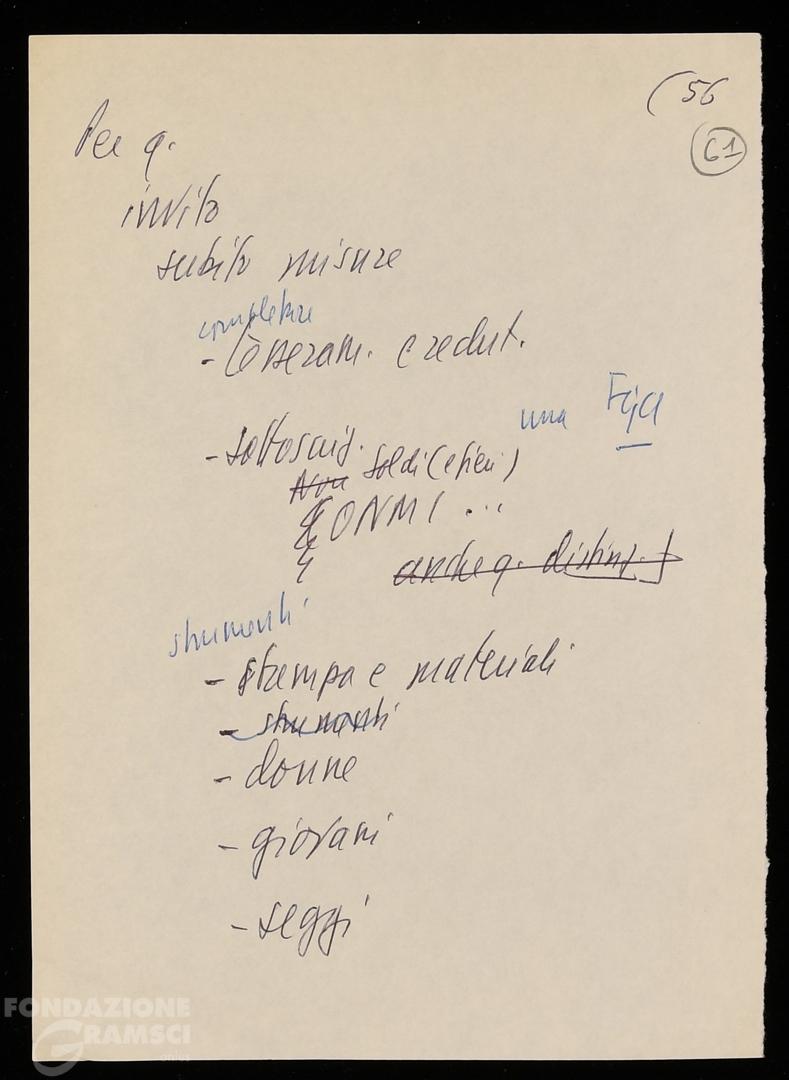 (56
61
Per q.
invito
subito misure
completare
- Tesseram. e reclut.
una Fgci
- sottoscriz.
Non soldi (e fieri)
ONMI ...
anche q. distinz.
strumenti
- stampa e materiali
- strumenti
- donne
- giovani
- seggi
FONDAZIONE
GRAMSCI
onlus